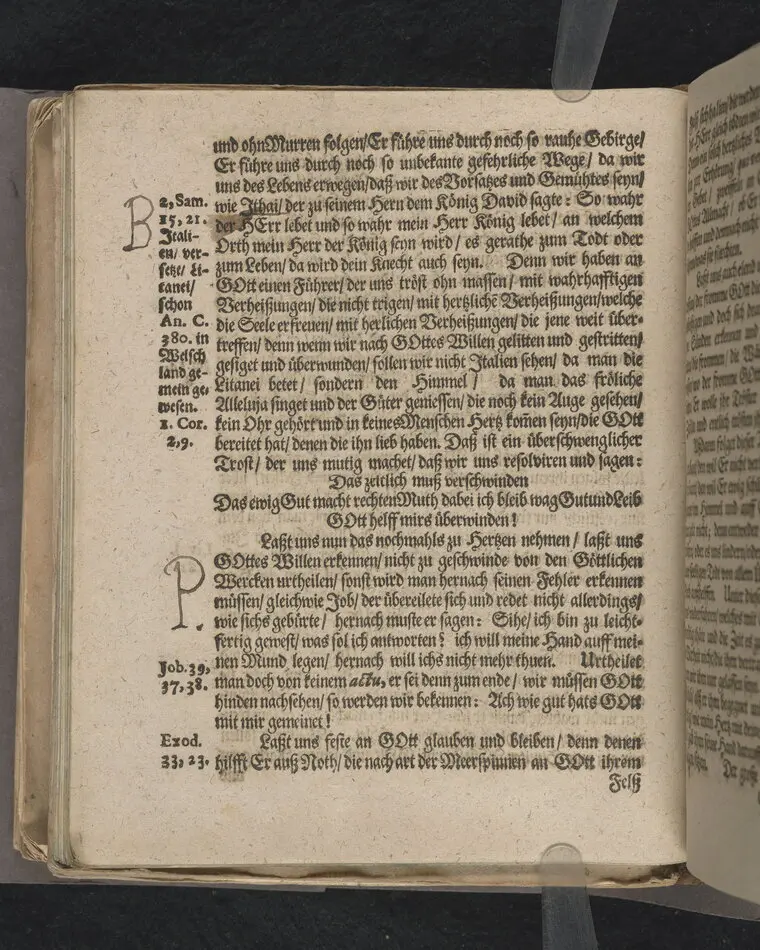 und ohn Murren folgen/ Er führe uns durch noch so rauhe Gebirge/
Er führe uns durch noch so unbekante gefehrliche Wege/ da wir
uns des Lebens erwegen/ daß wir des Vorsatzes und Gemühtes seyn/
wie Ithai/ der zu seinem Hern dem König David sagte: So wahr
der HErr lebet und so wahr mein Herr König lebet/ an welchem
Orth mein Herr der König seyn wird/ es gerathe zum Todt oder
zum Leben/ da wird dein Knecht auch seyn. Denn wir haben an
GOtt einen Führer/ der uns tröst ohn massen/ mit wahrhafftigen
Verheißungen/ die nicht trigen/ mit hertzlichē Verheißungen/ welche
die Seele erfreuen/ mit herlichen Verheißungen/ die jene weit über-
treffen/ denn wenn wir nach GOttes Willen gelitten und gestritten/
gesiget und überwunden/ sollen wir nicht Italien sehen/ da man die
Litanei betet/ sondern den Himmel/ da man das fröliche
Alleluja singet und der Güter geniessen/ die noch kein Auge gesehen/
kein Ohr gehört und in keines Menschen Hertz kom̃en seyn/ die GOtt
bereitet hat/ denen die ihn lieb haben. Daß ist ein überschwenglicher
Trost/ der uns mutig machet/ daß wir uns resolviren und sagen:
Das zeitlich muß verschwinden
Das ewig Gut macht rechten Muth dabei ich bleib wag Gut und Leib
GOtt helff mirs überwinden!
Laßt uns nun das nochmahls zu Hertzen nehmen/ laßt uns
GOttes Willen erkennen/ nicht zu geschwinde von den Göttlichen
Wercken urtheilen/ sonst wird man hernach seinen Fehler erkennen
müssen/ gleichwie Job/ der übereilete sich und redet nicht allerdings/
wie sichs gebürte/ hernach muste er sagen: Sihe/ ich bin zu leicht-
fertig gewest/ was sol ich antworten? ich will meine Hand auff mei-
nen Mund legen/ hernach will ichs nicht mehr thuen. Urtheilet
man doch von keinem actu, er sei denn zum ende/ wir müssen GOtt
hinden nachsehen/ so werden wir bekennen: Ach wie gut hats GOtt
mit mir gemeinet!
Laßt uns feste an GOtt glauben und bleiben/ denn denen
hilfft Er auß Noth/ die nach art der Meerspinnen an GOtt ihrem
Felß
B
2, Sam.
15, 21.
Itali-
en/ ver-
setze/ Li-
tanei/
schon
An. C.
380. in
Welsch
land ge-
mein ge-
wesen.
1. Cor.
2, 9.
P.
Job. 39,
37, 38.
Exod.
33, 23.